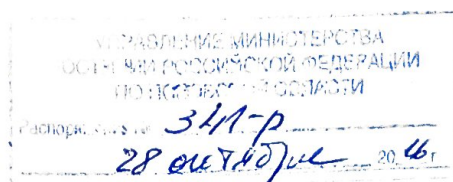 УПРАВЛЕНИЕ МИНИСТЕРСТВА
ЮСТИЦИИ РОССИЙСКОЙ ФЕДЕРАЦИИ
ПО ОБЛАСТИ
Распоряжение №
28 октября 20 16 г.